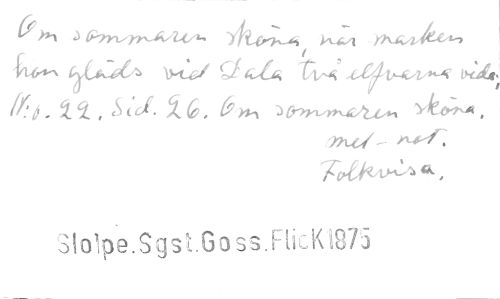 Om sommaren sköna, när marken
hon gläds vid Dala två elfvarna vida;
N:o. 22. Sid. 26. Om sommaren sköna.
mel-not.
Folkvisa.
Slolpe.Sgst.Goss.FlicK1875